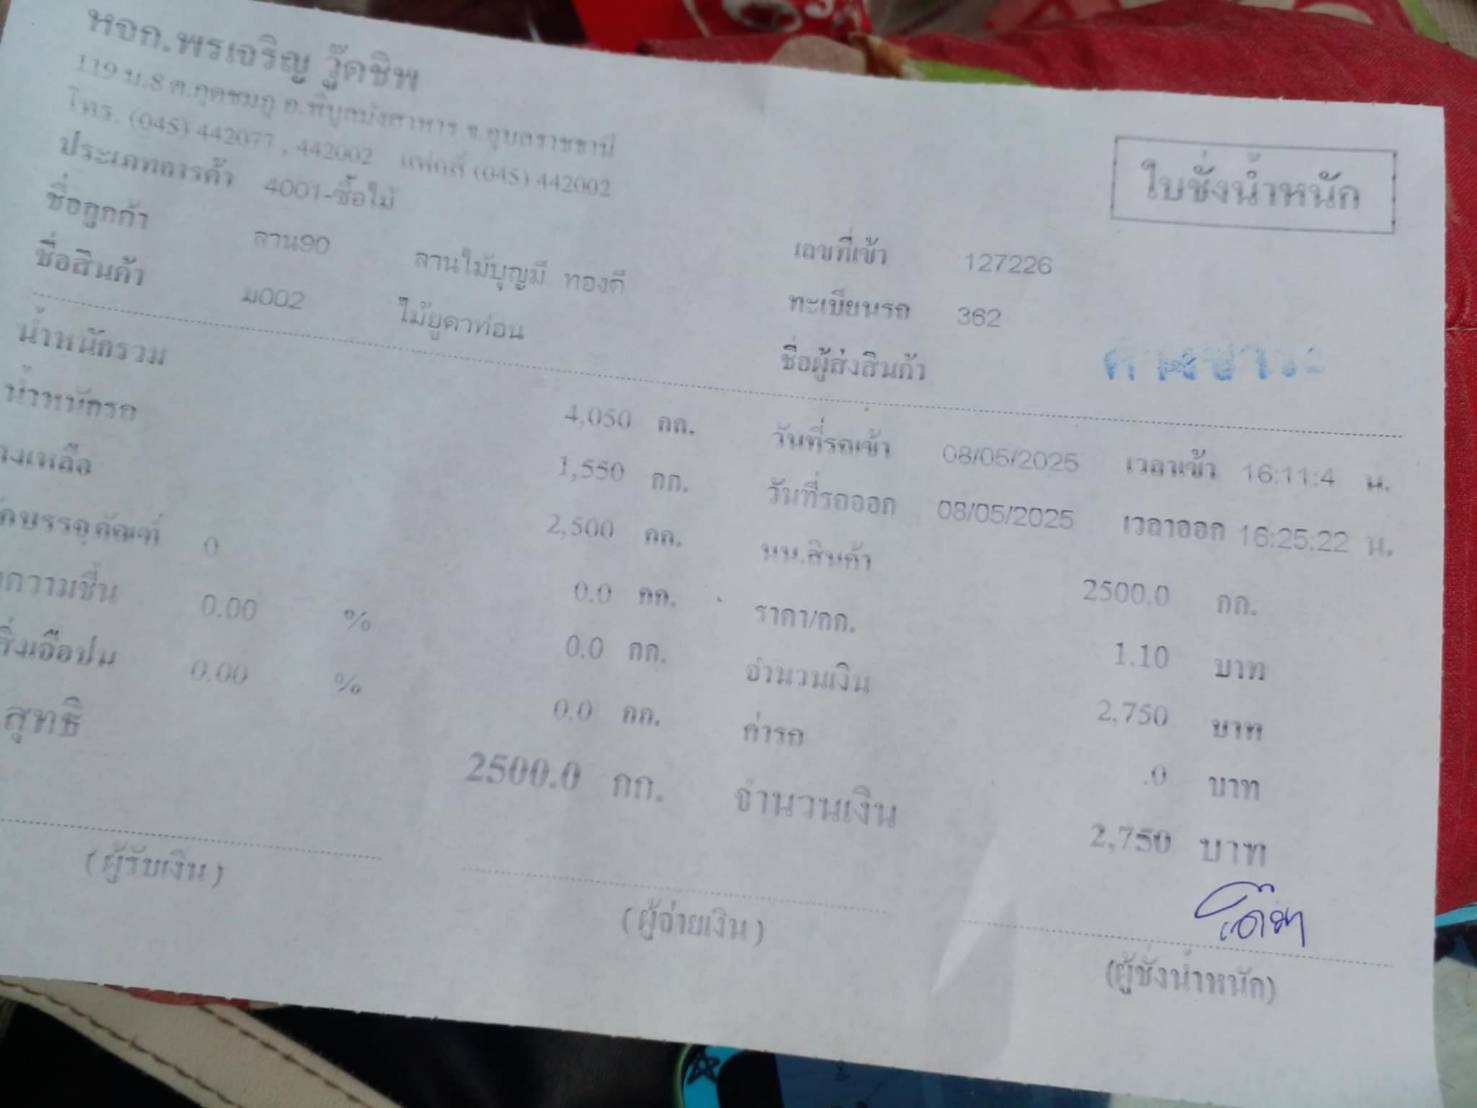 หจก.พรเจริญ วู๊ดชิพ
119 ม.8 ต.กุดชมภู อ.พิบูลมังสาหาร จ.อุบลราชธานี
โทร. (045) 442077 , 442002 แฟกส์ (045) 442002
ใบชั่งน้ำหนัก
ประเภทการค้า 4001-ซื้อไม้
ชื่อลูกค้า ลาน90 ลานไม้บุญมี ทองดี เลขที่เข้า 127226
ชื่อสินค้า ม002 ไม้ยูคาท่อน ทะเบียนรถ 362
ชื่อผู้ส่งสินค้า
น้ำหนักรวม 4,050 กก. วันที่รถเข้า 08/05/2025 เวลาเข้า 16:11:4 น.
น้ำหนักรถ 1,550 กก. วันที่รถออก 08/05/2025 เวลาออก 16:25:22 น.
คงเหลือ 2,500 กก. นน.สินค้า 2500.0 กก.
บรรจุภัณฑ์ 0 0.0 กก. ราคา/กก. 1.10 บาท
ความชื้น 0.00 % 0.0 กก. จำนวนเงิน 2,750 บาท
สิ่งเจือปน 0.00 % 0.0 กก. ค่ารถ .0 บาท
สุทธิ 2500.0 กก. จำนวนเงิน 2,750 บาท
(ผู้รับเงิน) (ผู้จ่ายเงิน) (ผู้ชั่งน้ำหนัก)